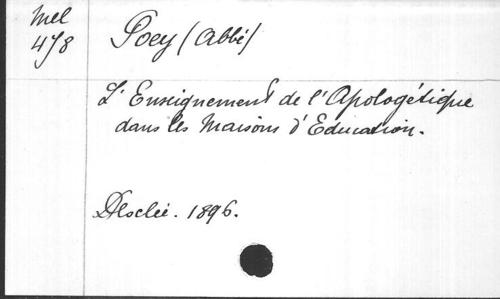 Mel
478
Poey (Abbé)
L'Enseignement de l'Apologétique
dans les Maisons d'Education.
Desclée. 1896.